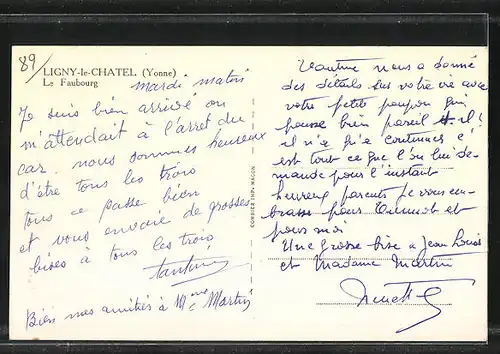 89
LIGNY-le-CHATEL (Yonne)
Le Faubourg
mardi matin
Je suis bien arrivé on
m'attendait à l'arret du
car. nous sommes heureux
d'être tous les trois
tous ce passe bien
et vous envoie de grosses
bises à tous les trois
tantine
Bien mes amitiés à Mme Martin
COMBIER IMP. MACON
Tantine nous a donné
des détails sur votre vie avec
votre petit poupon qui
pousse bien pareil il !
il n'a qu'a continuer c'
est tout ce que l'on lui de-
mande pour l'instant
heureux parents je vous em-
brasse pour et
pour moi
Une grosse bise a Jean Louis
et Madame Martin